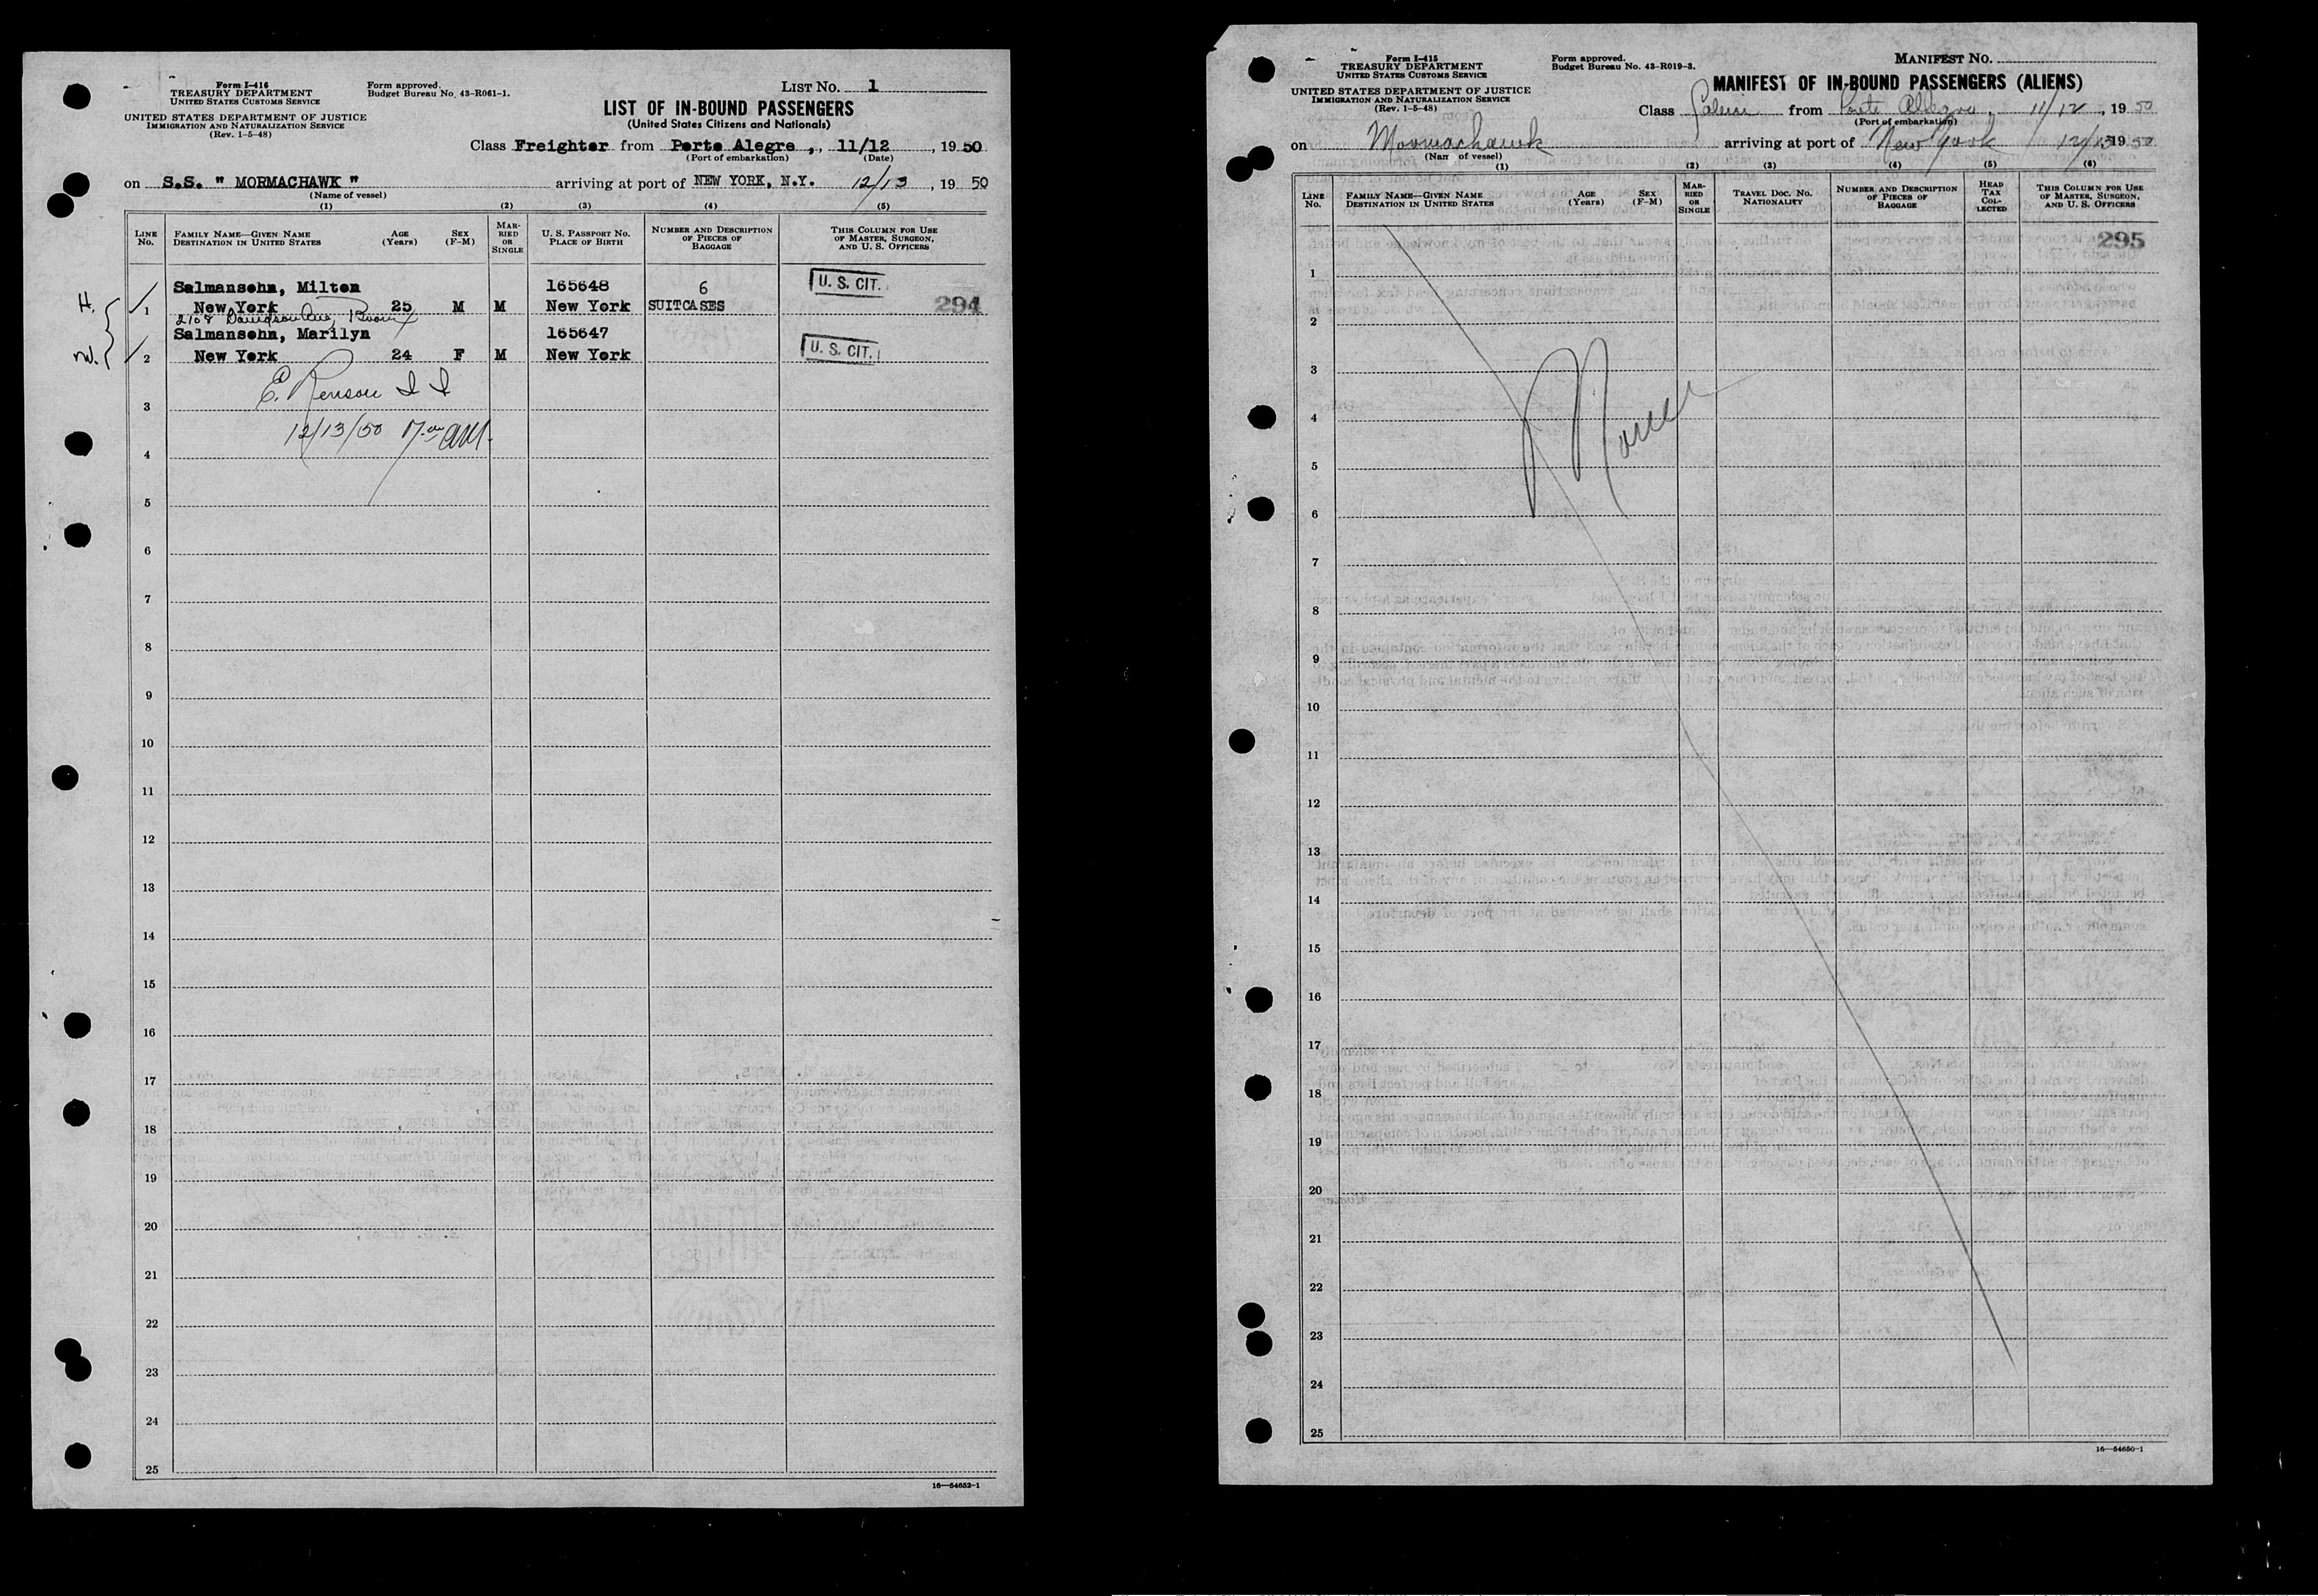 Form I-416
TREASURY DEPARTMENT
UNITED STATES CUSTOMS SERVICE
UNITED STATES DEPARTMENT OF JUSTICE
IMMIGRATION AND NATURALIZATION SERVICE
(Rev. 1-5-48)
Form approved.
Budget Bureau No. 43-R061-1.
LIST NO. 1
LIST OF IN-BOUND PASSENGERS
(United States Citizens and Nationals)
Class Freighter from Porto Alegre , , 11/12 , 19 50
(Port of embarkation) (Date)
on S.S. " MORMACHAWK " arriving at port of NEW YORK, N.Y. 12/13 , 19 50
(Name of vessel)
(1) (2) (3) (4) (5)
LINE No. FAMILY NAME—GIVEN NAME DESTINATION IN UNITED STATES AGE (Years) SEX (F-M) MARRIED OR SINGLE U. S. PASSPORT NO. PLACE OF BIRTH NUMBER AND DESCRIPTION OF PIECES OF BAGGAGE THIS COLUMN FOR USE OF MASTER, SURGEON, AND U. S. OFFICERS
Salmansohn, Milton 165648 6 U. S. CIT.
H. 1 New York 25 M M New York SUITCASES 294
2108 Davidson Ave, Bronx
Salmansohn, Marilyn 165647
W. 2 New York 24 F M New York U. S. CIT.
E. Renson I I
3
12/13/50 AM.
4
5
6
7
8
9
10
11
12
13
14
15
16
17
18
19
20
21
22
23
24
25
16—54652-1
Form I-415
TREASURY DEPARTMENT
UNITED STATES CUSTOMS SERVICE
UNITED STATES DEPARTMENT OF JUSTICE
IMMIGRATION AND NATURALIZATION SERVICE
(Rev. 1-5-48)
Form approved.
Budget Bureau No. 43-R019-3.
MANIFEST NO.
MANIFEST OF IN-BOUND PASSENGERS (ALIENS)
Class from Porto Allegro , 11/12 , 19 50
(Port of embarkation)
on Moormachawk arriving at port of New York 12/13 19 50
(Nam of vessel)
(1) (2) (3) (4) (5) (6)
LINE No. FAMILY NAME—GIVEN NAME DESTINATION IN UNITED STATES AGE (Years) SEX (F-M) MARRIED OR SINGLE TRAVEL DOC. NO. NATIONALITY NUMBER AND DESCRIPTION OF PIECES OF BAGGAGE HEAD TAX COLLECTED THIS COLUMN FOR USE OF MASTER, SURGEON, AND U. S. OFFICERS
295
1
2
3
None
4
5
6
7
8
9
10
11
12
13
14
15
16
17
18
19
20
21
22
23
24
25
16—54650-1